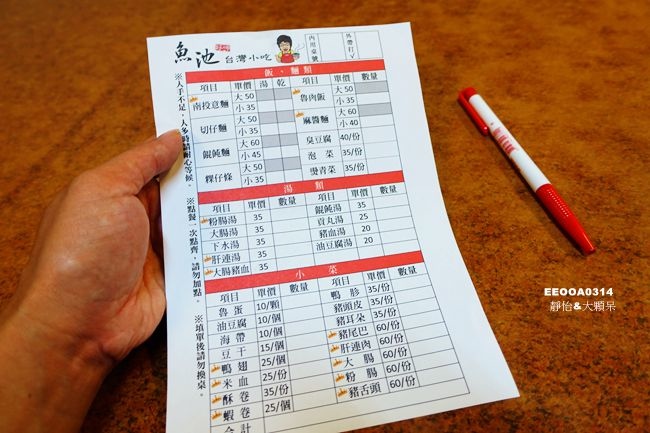 魚池 台灣小吃
內用桌號
外帶打√
飯、麵類
項目 單價 湯 乾 項目 單價 數量
南投意麵 大50 小35 魯肉飯 大50 小35
切仔麵 大50 小35 麻醬麵 大60 小40
餛飩麵 大60 小45 臭豆腐 40/份
泡菜 35/份
粿仔條 大50 小35 燙青菜 35/份
湯類
項目 單價 數量 項目 單價 數量
粉腸湯 35 餛飩湯 35
大腸湯 35 貢丸湯 25
下水湯 35 豬血湯 20
肝連湯 35 油豆腐湯 20
大腸豬血 35
小菜
項目 單價 數量 項目 單價 數量
魯蛋 10/顆 鴨胗 35/份
油豆腐 10/個 豬頭皮 35/份
海帶 10/個 豬耳朵 35/份
豆干 15/個 豬尾巴 60/份
鴨翅 25/個 肝連肉 60/份
米血 25/份 大腸 60/份
酥卷 35/份 粉腸 60/份
蝦卷 25/個 豬舌頭 60/份
合計
※人手不足，人多時請耐心等候。
※點餐一次點齊，請勿加點。
※填單後請勿換桌。
EEOOA0314
靜怡&大顆呆